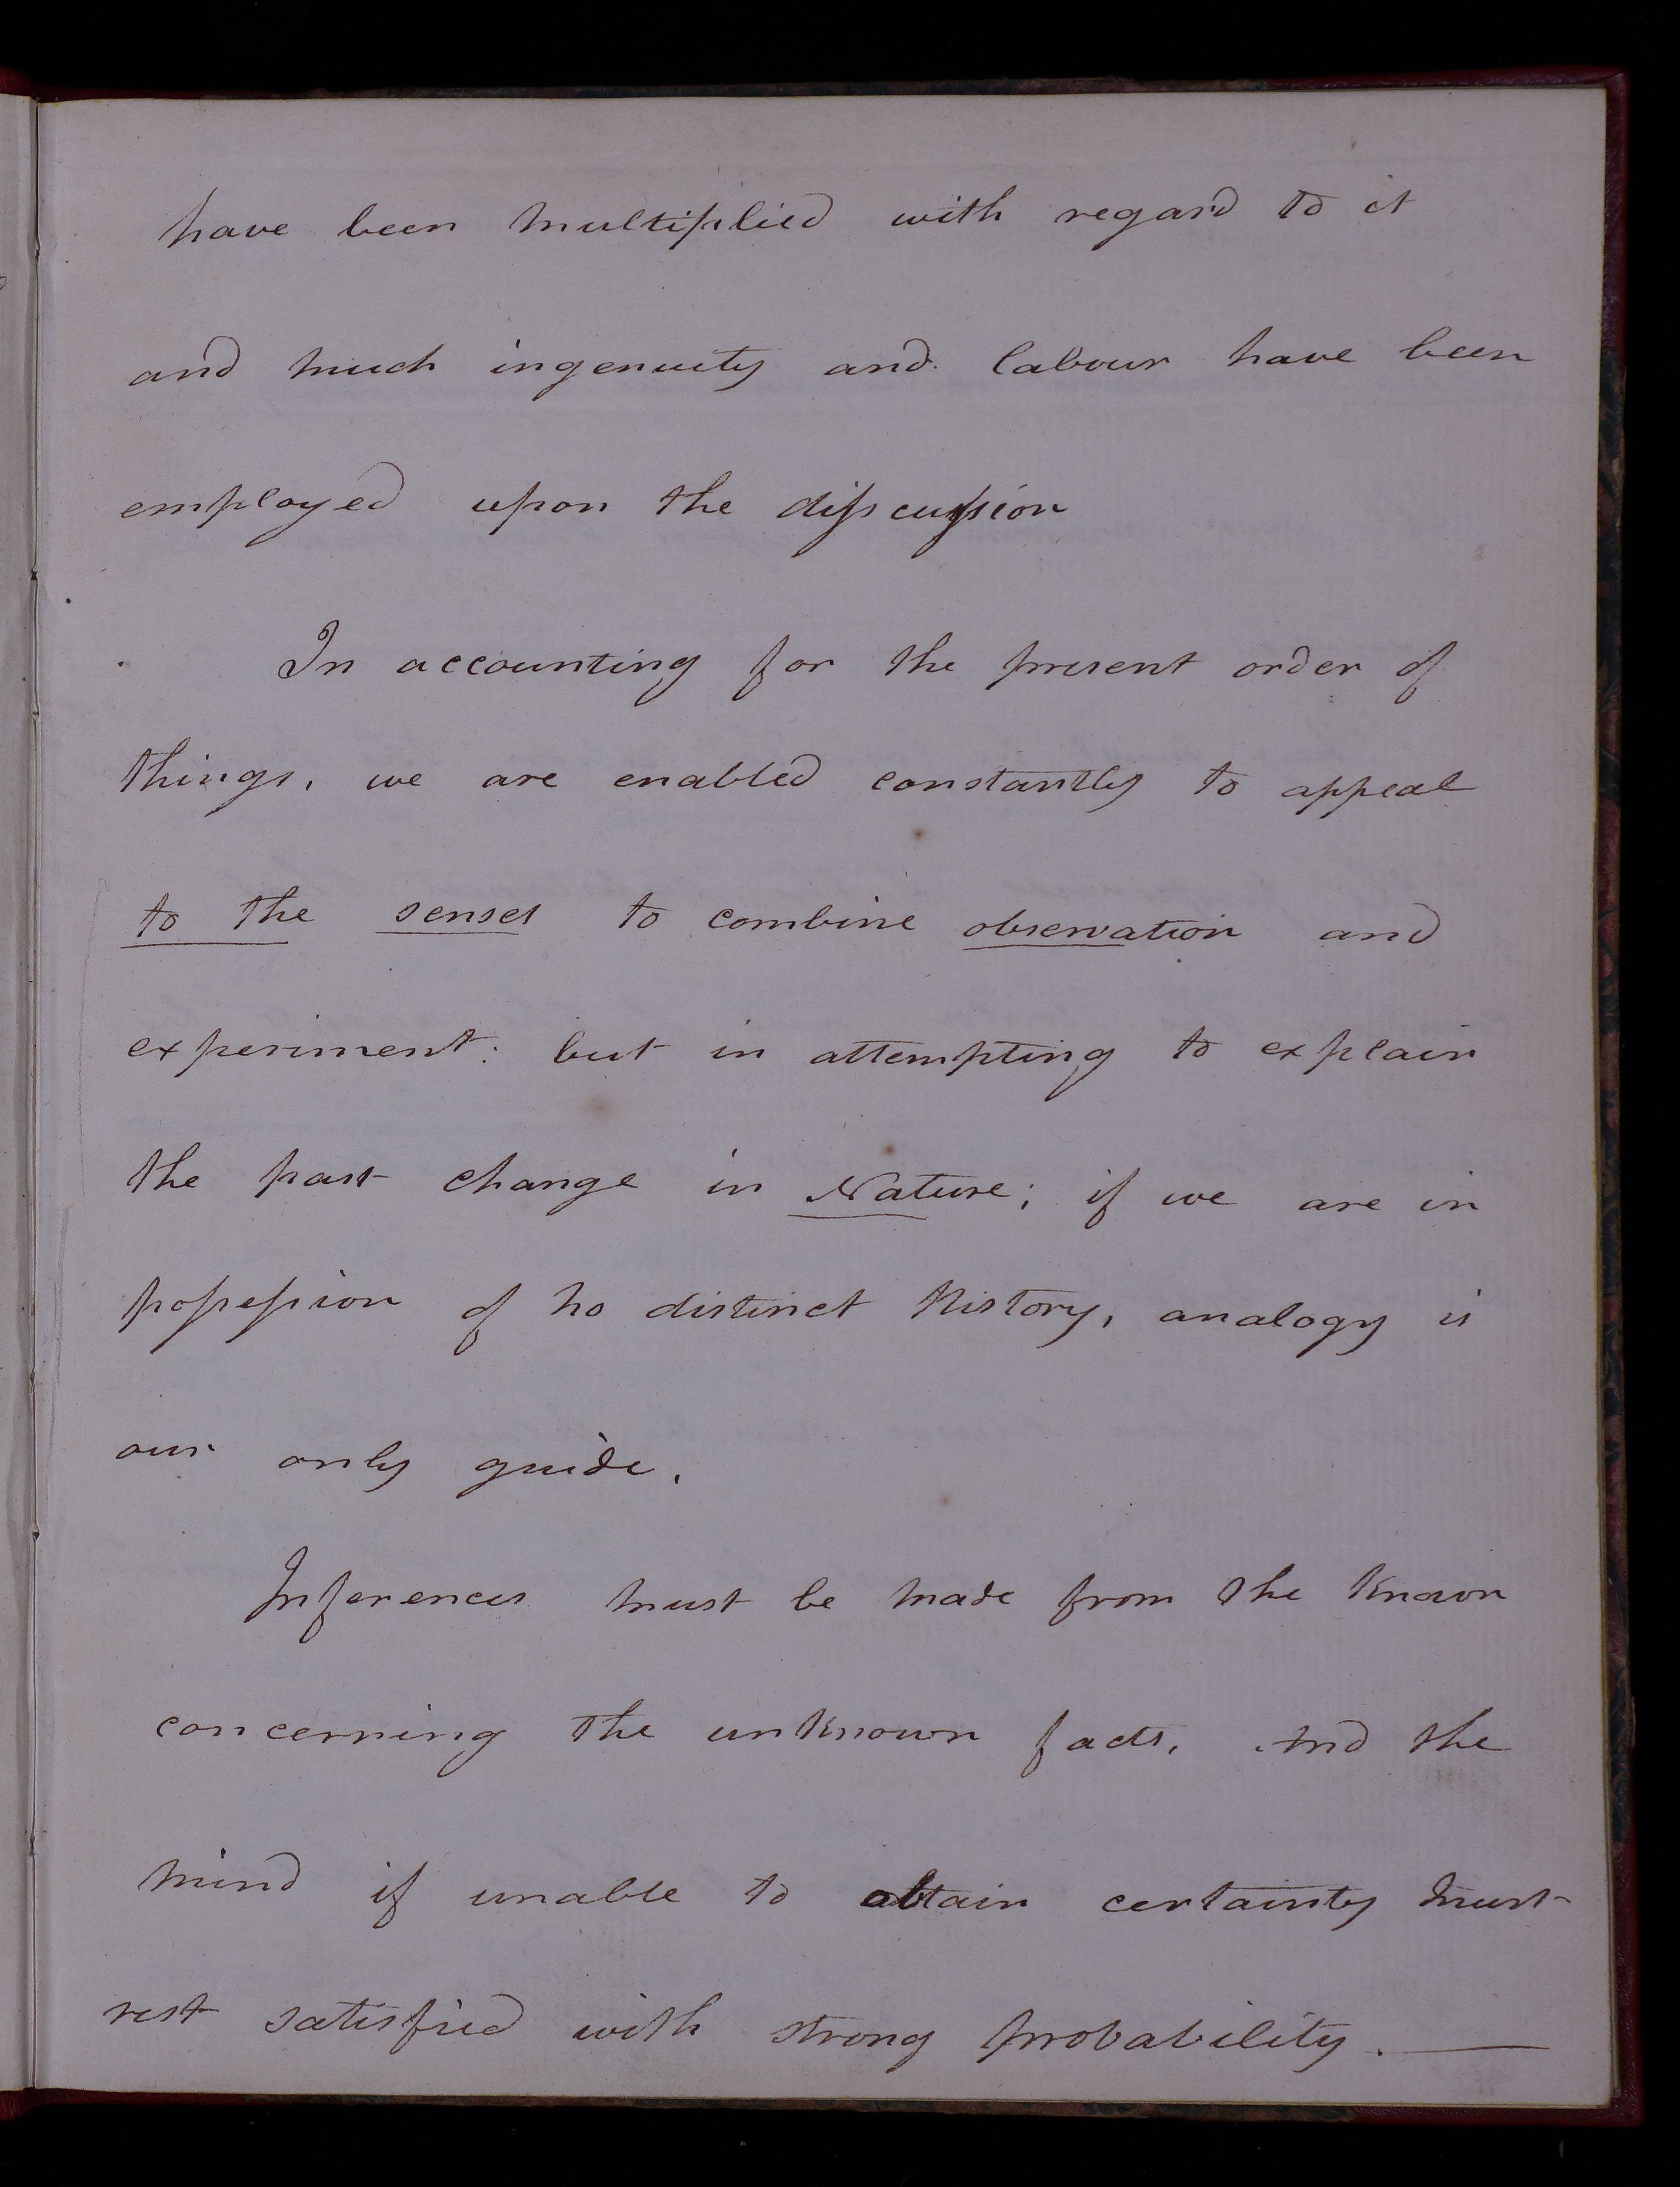 have been multiplied with regard to it
and much ingenuity and labour have been
employed upon the disscussion
In accounting for the present order of
things, we are enabled constantly to appeal
to the senses to combine observation and
experiment: but in attempting to explain
the past change in Nature; if we are in
possession of no distinct History, analogy is
our only guide.
Inferences must be made from the known
concerning the unknown facts, And the
mind if unable to obtain certainty must
rest satisfied with strong probability. —